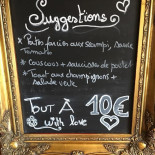 Suggestions
* Pâtes farcies aux scampi, sauce
tomate
* Couscous + saucisses de poulet
* Toast aux champignons +
salade verte
Tout à 10€
with love